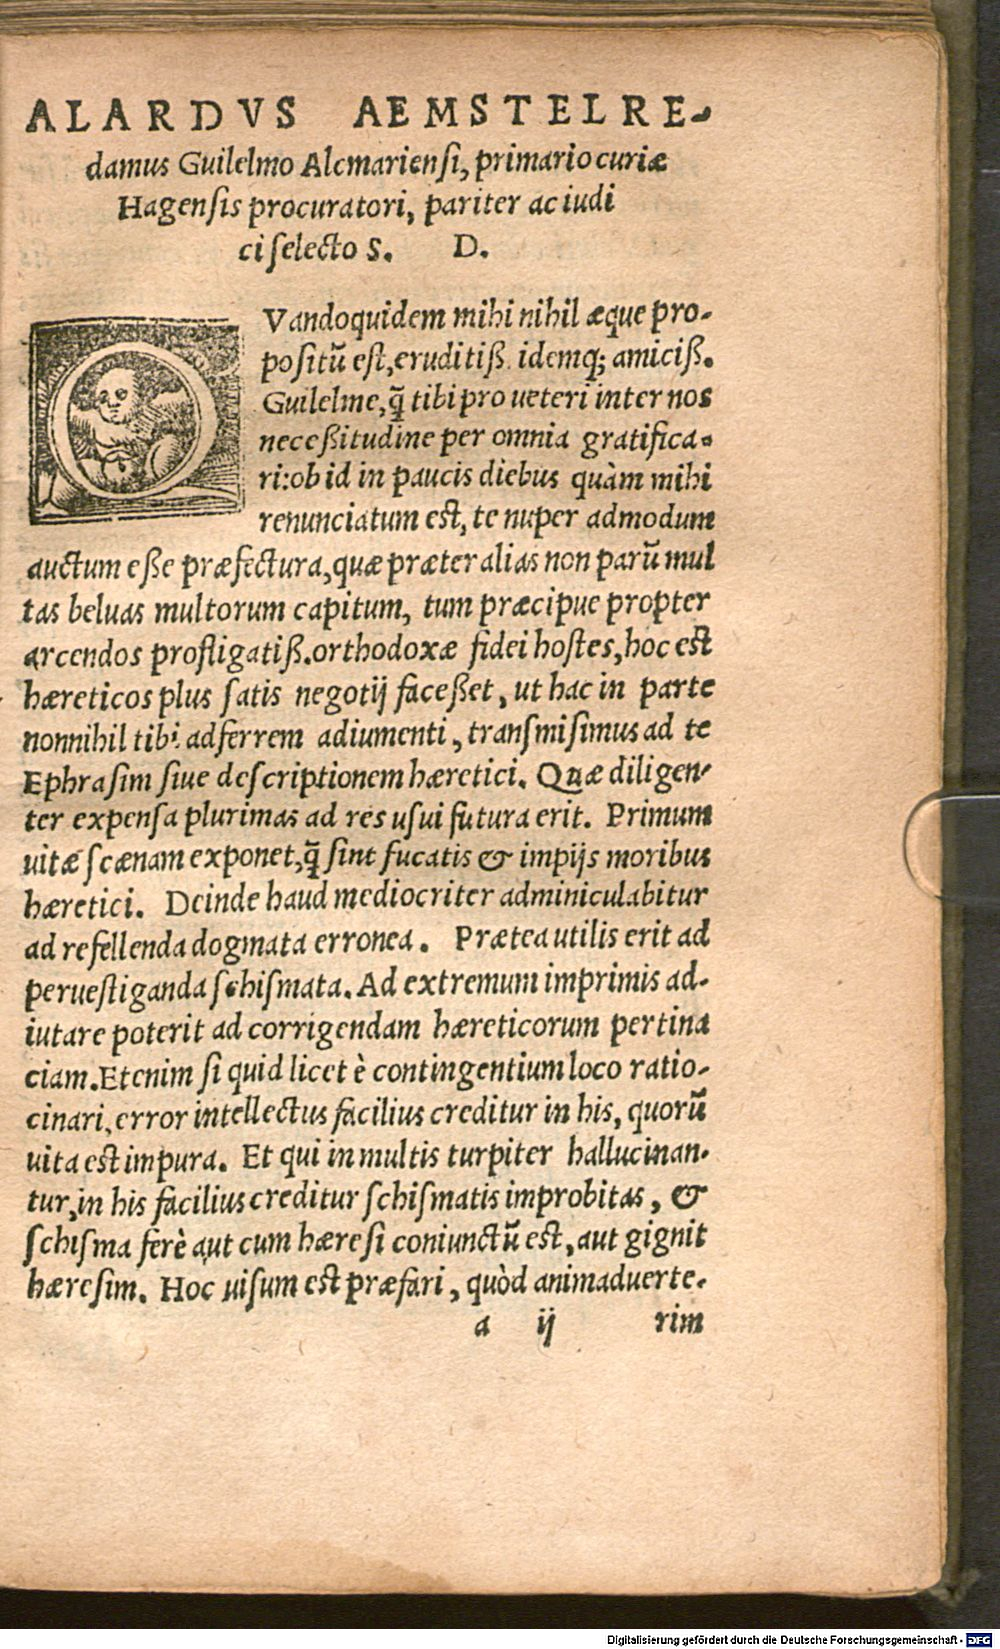 ALARDVS AEMSTELRE-
damus Guilelmo Alcmariensi, primario curiæ
Hagensis procuratori, pariter ac iudi
ci selecto S. D.
QVandoquidem mihi nihil æque pro-
positū est, eruditiß. idemq; amiciß.
Guilelme, q̄ tibi pro ueteri inter nos
neceßitudine per omnia gratifica-
ri: ob id in paucis diebus quàm mihi
renunciatum est, te nuper admodum
auctum eße præfectura, quæ præter alias non parū mul
tas beluas multorum capitum, tum præcipue propter
arcendos profligatiß. orthodoxæ fidei hostes, hoc est
hæreticos plus satis negotij faceßet, ut hac in parte
nonnihil tibi adferrem adiumenti, transmisimus ad te
Ephrasim siue descriptionem hæretici. Quæ diligen-
ter expensa plurimas ad res usui futura erit. Primum
uitæ scænam exponet, q̄ sint fucatis & impijs moribus
hæretici. Deinde haud mediocriter adminiculabitur
ad refellenda dogmata erronea. Prætea utilis erit ad
peruestiganda schismata. Ad extremum imprimis ad-
iutare poterit ad corrigendam hæreticorum pertina
ciam. Etenim si quid licet è contingentium loco ratio-
cinari, error intellectus facilius creditur in his, quorū
uita est impura. Et qui in multis turpiter hallucinan-
tur, in his facilius creditur schismatis improbitas, &
schisma ferè aut cum hæresi coniunctū est, aut gignit
hæresim. Hoc uisum est præfari, quòd animaduerte-
a ij rim
Digitalisierung gefördert durch die Deutsche Forschungsgemeinschaft - DFG